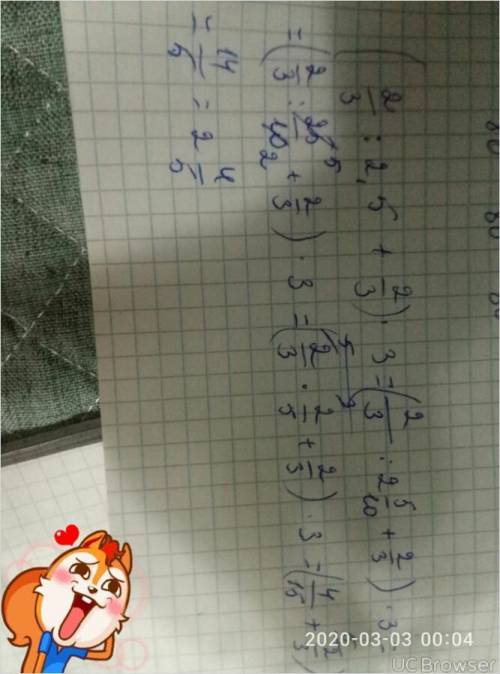 (2/3 : 2,5 + 2/3) · 3 = (2/3 : 2 5/10 + 2/3) · 3 =
= (2/3 : 25/10 + 2/3) · 3 = (2/3 · 2/5 + 2/3) · 3 = (4/15 + 2/3)
= 14/5 = 2 4/5
2020-03-03 00:04
UCBrowser